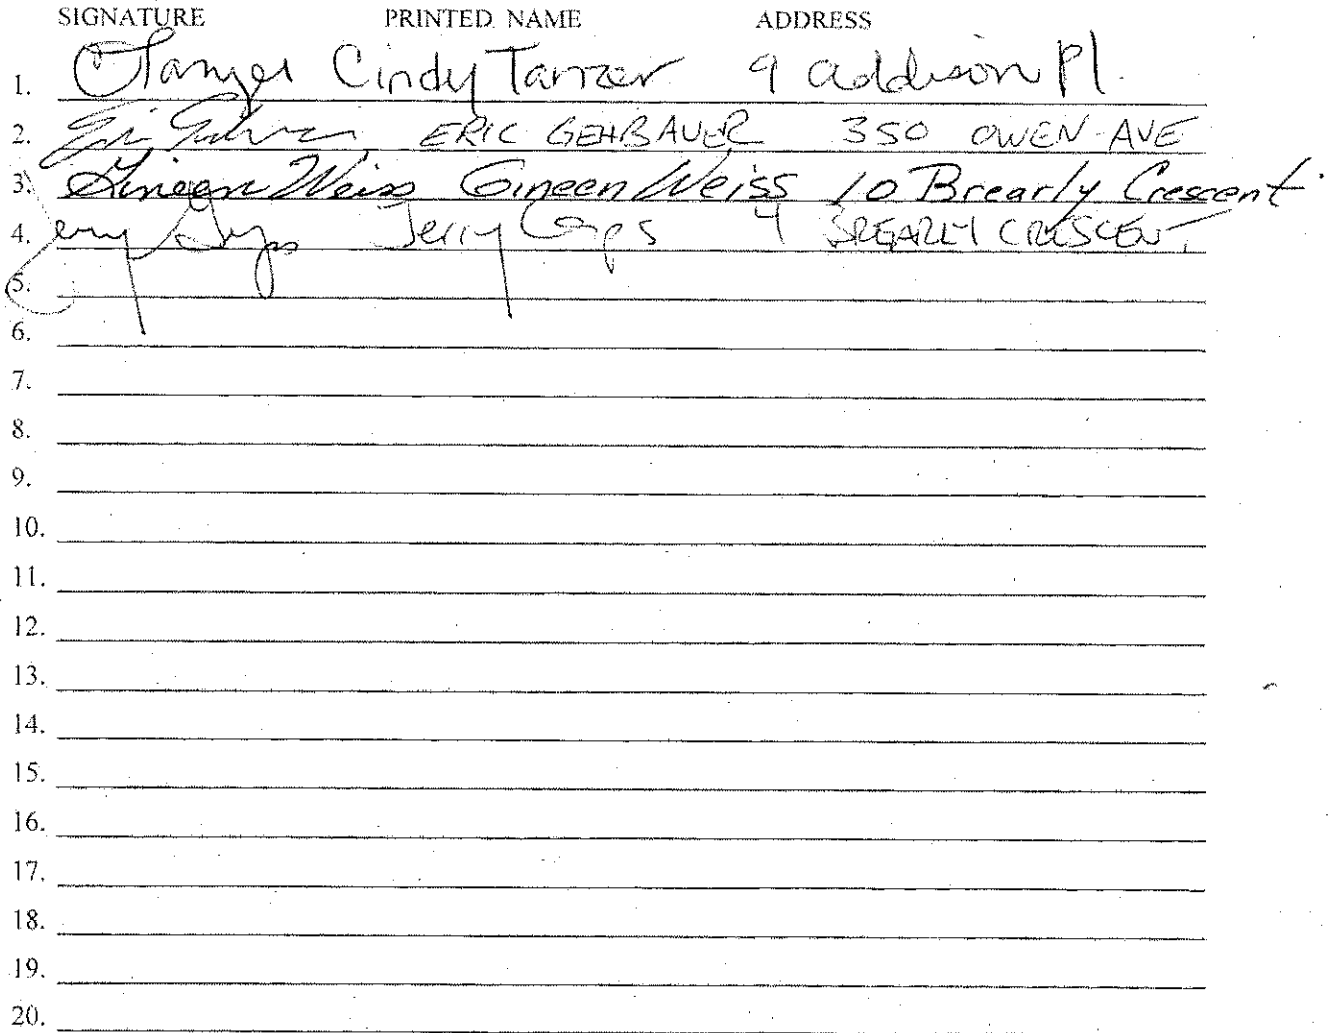 SIGNATURE PRINTED NAME ADDRESS
1. CTanzer Cindy Tanzer 9 Addison Pl.
2. ERIC GEHBAUER 350 OWEN AVE
3. Gineen Weiss Gineen Weiss 10 Brearly Crescent
4. Jerry Jerry 4 BREARLY CRESCENT
5.
6.
7.
8.
9.
10.
11.
12.
13.
14.
15.
16.
17.
18.
19.
20.